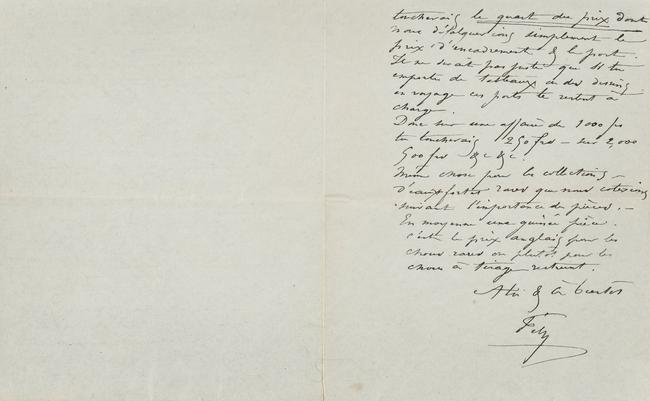 toucherais le quart du prix dont
nous défalquerions simplement le
prix d'encadrement & le port.
Il ne serait pas juste que si tu
emportes des tableaux ou des dessins
en voyage ces ports te restent à
charge.
Donc sur une affaire de 1000 frs
tu toucherais 250 frs – sur 2,000
500 frs &c &c.
Même chose pour les collections –
d'eaux fortes rares que nous coterions
suivant l'importance des pièces. –
En moyenne une guinée pièce.
c'est le prix anglais pour les
choses rares ou plutôt pour les
choses à tirage restreint.
A toi & à bientôt